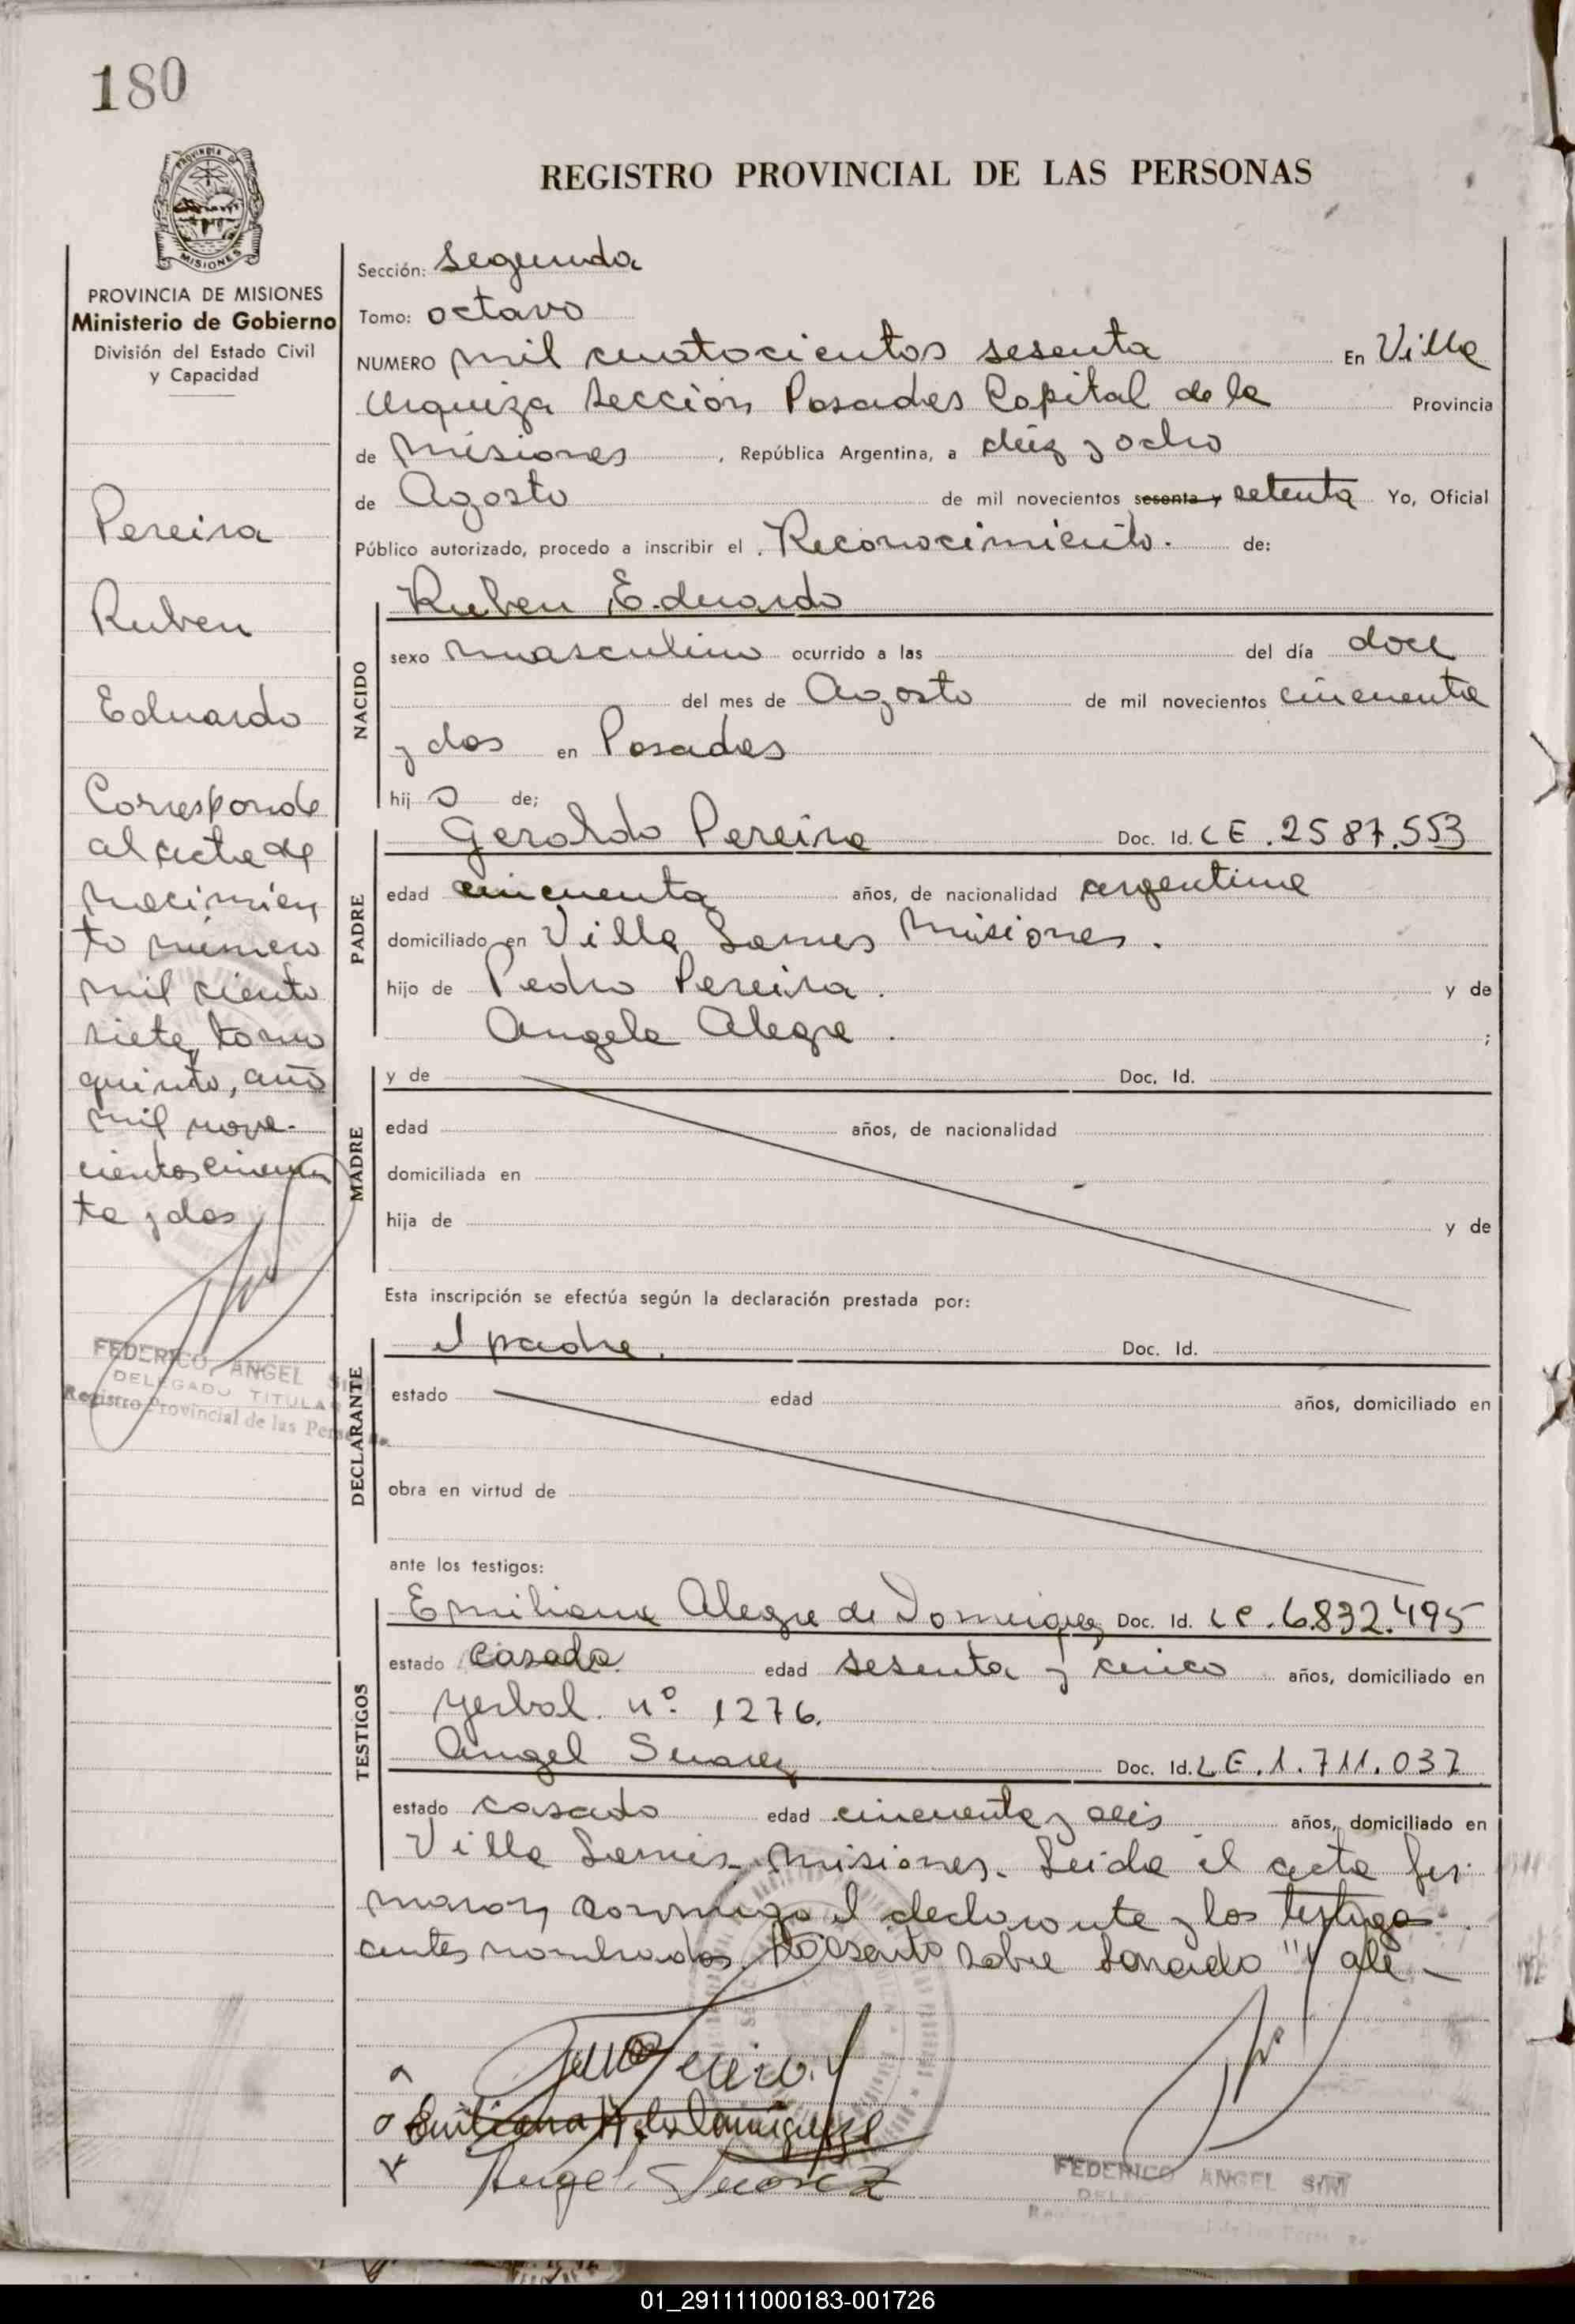 180
PROVINCIA DE
MISIONES
PROVINCIA DE MISIONES
Ministerio de Gobierno
División del Estado Civil
y Capacidad
Pereira
Ruben
Eduardo
Corresponde
al acta de
nacimien
to número
mil ciento
siete, tomo
quinto, año
mil nove-
cientos cincuen
ta y dos
FEDERICO ANGEL
DELEGADO TITULAR
Registro Provincial de las Personas
REGISTRO PROVINCIAL DE LAS PERSONAS
Sección: Segunda
Tomo: octavo
NUMERO mil cuatocientos sesenta En Villa
Urquiza Sección Posadas Capital de la Provincia
de Misiones, República Argentina, a diez y ocho
de Agosto de mil novecientos sesenta y setenta Yo, Oficial
Público autorizado, procedo a inscribir el Reconocimiento. de:
NACIDO
Ruben Eduardo
sexo masculino ocurrido a las del día doce
del mes de Agosto de mil novecientos cincuenta
y dos en Posadas
hijo de;
PADRE
Geraldo Pereira Doc. Id. LE. 2587.553
edad cincuenta años, de nacionalidad argentina
domiciliado en Villa Lanus Misiones.
hijo de Pedro Pereira. y de
Angela Alegre.;
MADRE
y de Doc. Id.
edad años, de nacionalidad
domiciliada en
hija de y de
Esta inscripción se efectúa según la declaración prestada por:
DECLARANTE
el padre. Doc. Id.
estado edad años, domiciliado en
obra en virtud de
ante los testigos:
TESTIGOS
Emiliana Alegre de Dominguez Doc. Id. LC. 6.832.495
estado casada edad sesenta y cinco años, domiciliado en
Yerbal. nº 1276.
Angel Suarez Doc. Id. LE. 1.711.037
estado casado edad cincuenta y seis años, domiciliado en
Villa Lanus. Misiones. Leida el acta fir-
maron conmigo el declarante y los testigos
antes nombrados. sobre
Angel Suarez
FEDERICO ANGEL
01_291111000183-001726